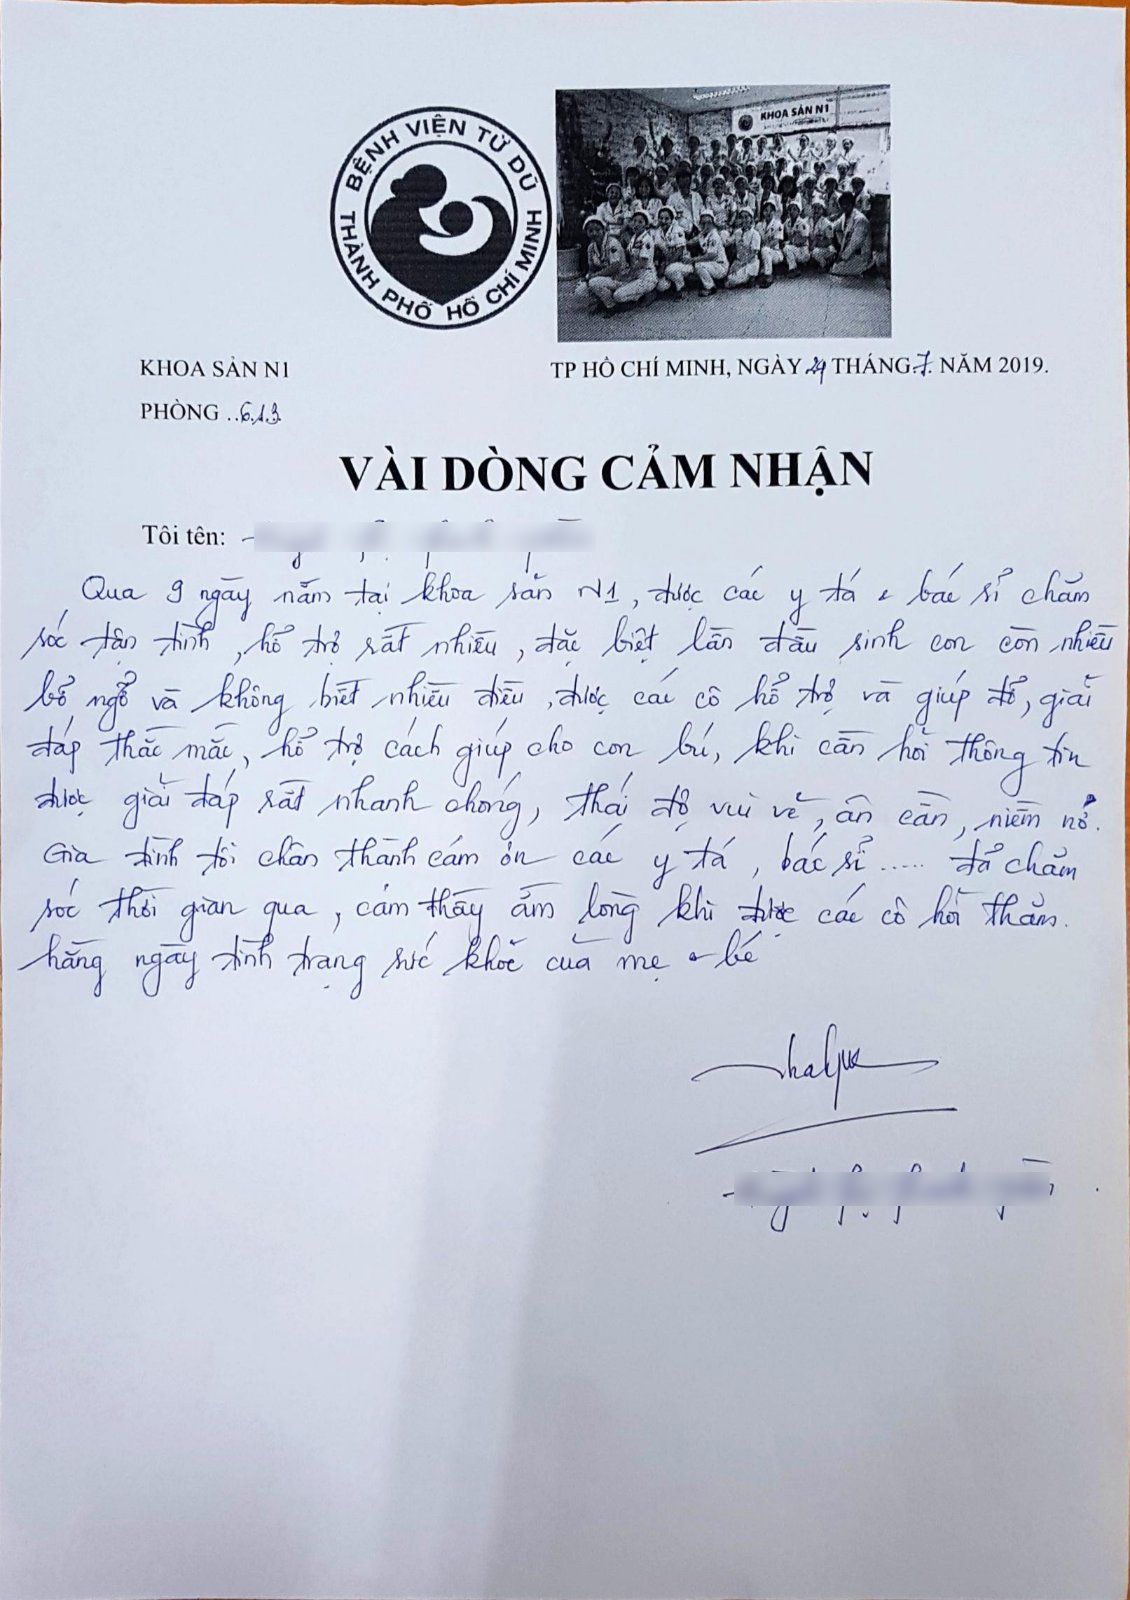 BỆNH VIỆN TỪ DŨ
THÀNH PHỐ HỒ CHÍ MINH
KHOA SẢN N1
KHOA SẢN N1
TP HỒ CHÍ MINH, NGÀY 29 THÁNG.7. NĂM 2019.
PHÒNG ..613
VÀI DÒNG CẢM NHẬN
Tôi tên:
Qua 9 ngày nằm tại khoa sản N1, được các y tá & bác sỉ chăm
sóc tận tình, hổ trợ rất nhiều, đặc biệt lần đầu sinh con còn nhiều
bở ngở và không biết nhiều điều, được các cô hổ trợ và giúp đở, giải
đáp thắc mắc, hổ trợ cách giúp cho con bú, khi cần hỏi thông tin
được giải đáp rất nhanh chóng, thái độ vui vẻ, ân cần, niềm nở.
Gia đình tôi chân thành cám ơn các y tá, bác sỉ ..... đả chăm
sóc thời gian qua, cảm thấy ấm lòng khi được các cô hỏi thăm
hằng ngày tình trạng sức khỏe của mẹ & bé